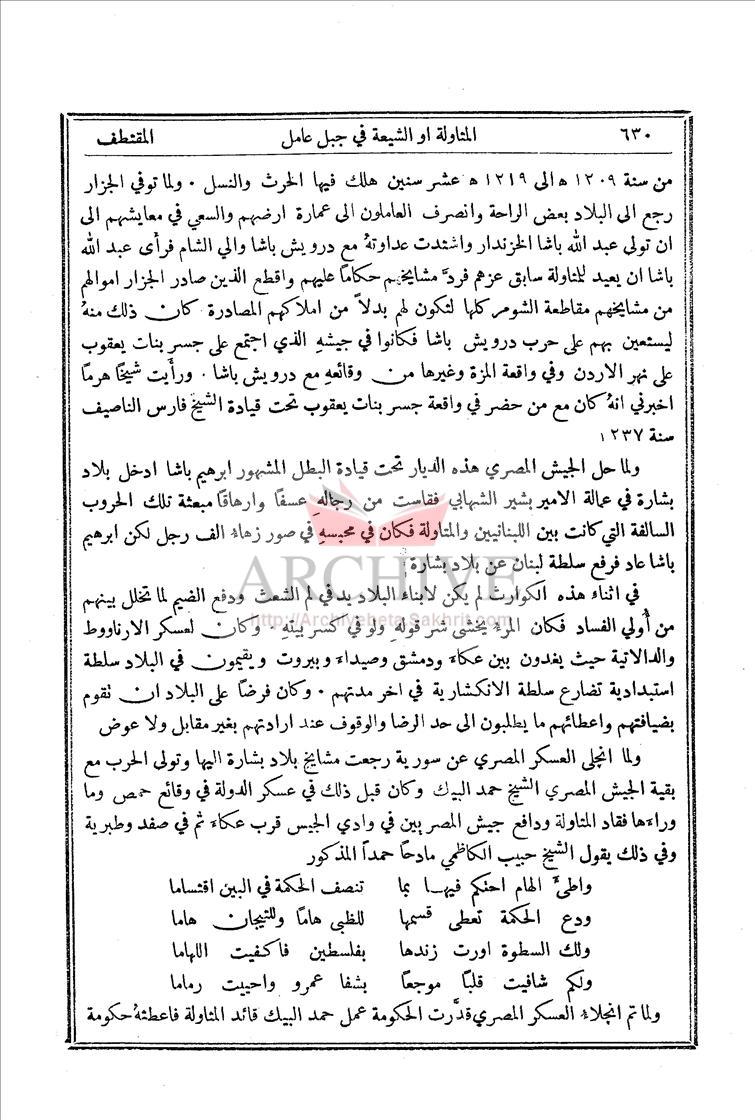 ٦٣٠ المتاولة او الشيعة في جبل عامل المقتطف
من سنة ١٢٠٩ ه الى ١٢١٩ ه عشر سنين هلك فيها الحرث والنسل ٠ ولما توفي الجزار
رجع الى البلاد بعض الراحة وانصرف العاملون الى عمارة ارضهم والسعي في معايشهم الى
ان تولى عبد الله باشا الخزندار واشتدت عداوتهُ مع درويش باشا والي الشام فرأى عبد الله
باشا ان يعيد للمتاولة سابق عزهم فردَّ مشايخهم حكاماً عليهم واقطع الذين صادر الجزار اموالهم
من مشايخهم مقاطعة الشومر كلها لتكون لهم بدلاً من املاكهم المصادرة كان ذلك منهُ
ليستعين بهم على حرب درويش باشا فكانوا في جيشهِ الذي اجتمع على جسر بنات يعقوب
على نهر الاردن وفي واقعة المزة وغيرها من وقائعهِ مع درويش باشا ٠ ورأيت شيخاً هرماً
اخبرني انهُ كان مع من حضر في واقعة جسر بنات يعقوب تحت قيادة الشيخ فارس الناصيف
سنة ١٢٣٧
ولما حل الجيش المصري هذه الديار تحت قيادة البطل المشهور ابرهيم باشا ادخل بلاد
بشارة في عمالة الامير بشير الشهابي فقاست من رجالهِ عسفاً وارهاقاً مبعثة تلك الحروب
السالفة التي كانت بين اللبنانيين والمتاولة فكان في محبسهِ في صور زهاء الف رجل لكن ابرهيم
باشا عاد فرفع سلطة لبنان عن بلاد بشارة
ARCHIVE
في اثناء هذه الكوارث لم يكن لابناء البلاد يد في لم الشعث ودفع الضيم لما تخلل بينهم
http://Archivebeta.Sakhrit.com
من أُولي الفساد فكان المرء يخشى شر قولهِ ولو في كسر بيتهِ ٠ وكان لعسكر الارناووط
والدالاتية حيث يغدون بين عكاء ودمشق وصيداء وبيروت ويقيمون في البلاد سلطة
استبدادية تضارع سلطة الانكشارية في اخر مدتهم ٠ وكان فرضاً على البلاد ان تقوم
بضيافتهم واعطائهم ما يطلبون الى حد الرضا والوقوف عند ارادتهم بغير مقابل ولا عوض
ولما انجلى العسكر المصري عن سورية رجعت مشايخ بلاد بشارة اليها وتولى الحرب مع
بقية الجيش المصري الشيخ حمد البيك وكان قبل ذلك في عسكر الدولة في وقائع حمص وما
وراءها فقاد المتاولة ودافع جيش المصريين في وادي الجيس قرب عكاء ثم في صفد وطبرية
وفي ذلك يقول الشيخ حبيب الكاظمي مادحاً حمداً المذكور
واطئ الهام احتكم فيهـا بما تنصف الحكمة في البين اقتساما
ودع الحكمة تعطى قسمها للظبى هاماً وللتيجان هاما
ولك السطوة اورت زندها بفلسطين فاكفيت اللهاما
ولكم شافيت قلباً موجعاً بشفا عمرو واحييت رماما
ولما تم انجلاء العسكر المصري قدَّرت الحكومة عمل حمد البيك قائد المتاولة فاعطتهُ حكومة